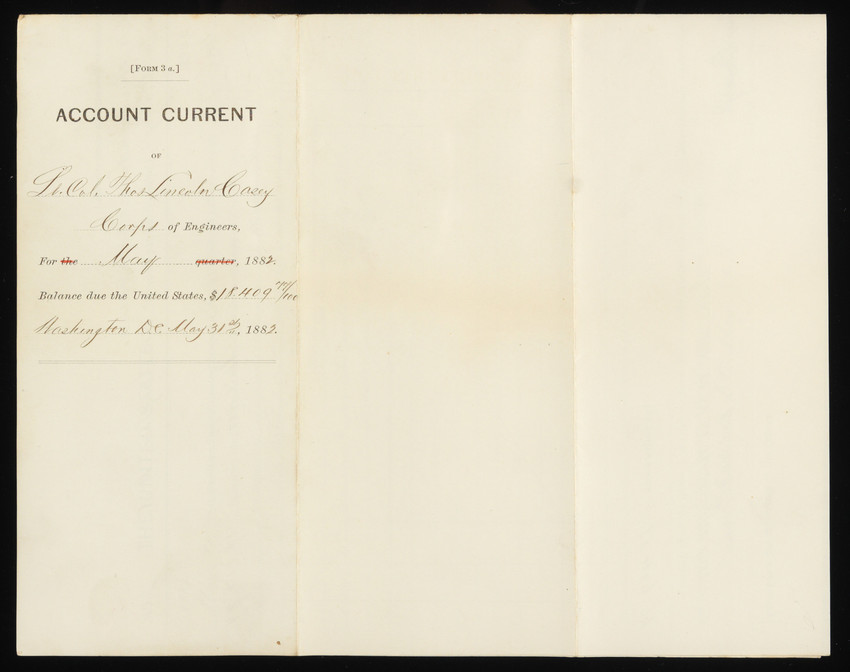 [FORM 3 a.]
ACCOUNT CURRENT
OF
Lt. Col. Thos Lincoln Casey
Corps of Engineers,
For the May quarter, 1882.
Balance due the United States, $18.409 /100
Washington D.C. May 31st, 1882.